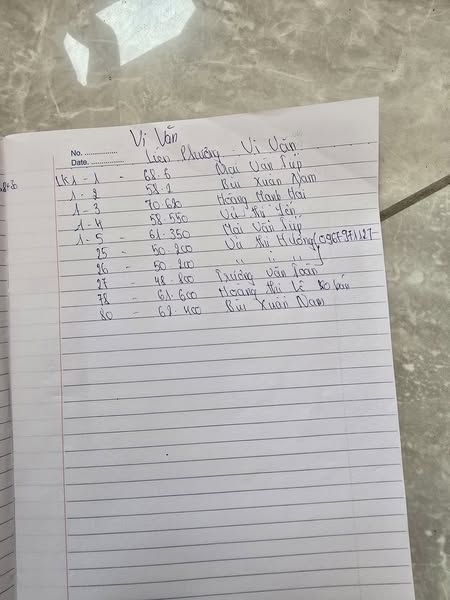 Vi Vân
No. ............
Date. ............
Liên Phường Vi Vân
LK 1 - 1 - 68.6 Mai Văn Tiệp
1 - 2 58.2 Bùi Xuân Nam
1 - 3 70 620 Hoàng Mạnh Hải
1 - 4 58 550 Vũ Thị Yến
1 - 5 - 61.350 Mai Văn Tiệp
25 - 50 200 Vũ Thị Hương
26 - 50 200 " " "
27 - 48.800 Trương Văn Toản
78 - 61 600 Hoàng Thị Lê ko bán
80 - 62 400 Bùi Xuân Nam